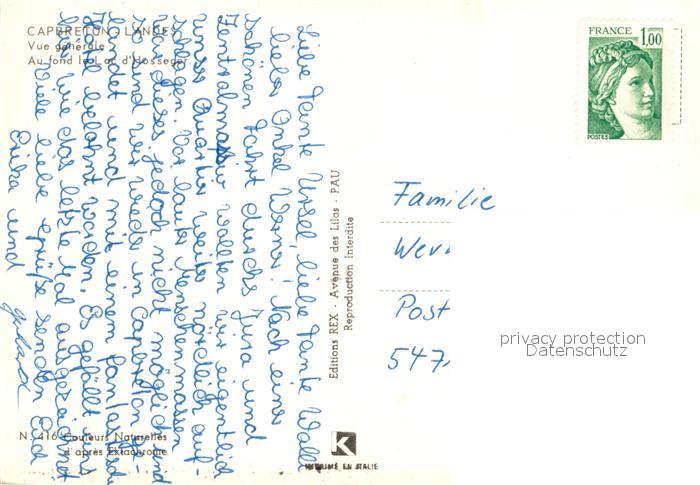 CAPBRETON - LANDES
Vue générale
Au fond le Lac d'Hossegor
Liebe Tante Ursel, liebe Tante Walli
lieber Onkel Werner! Nach einer
schönen Fahrt durchs Jura und
Zentralmassiv wollten wir eigentlich
unser Quartier weiter nördlich auf-
schlagen. Vor lauter Menschenmassen
war dieses jedoch nicht möglich und
so sind wir wieder in Capbreton ge-
landet und mit einem fantastisch
Hotel belohnt worden. Es gefällt uns
hier wie das letzte Mal ausgezeichnet
Viele liebe Grüße senden Euch
Erika und
Gerhard
N. 416 Couleurs Naturelles
d'après Ektachrome
Editions REX - Avenue des Lilas - PAU
Reproduction Interdite
K
IMPRIMÉ EN ITALIE
FRANCE 1,00
POSTES
Familie
Wer
Post
547
privacy protection
Datenschutz